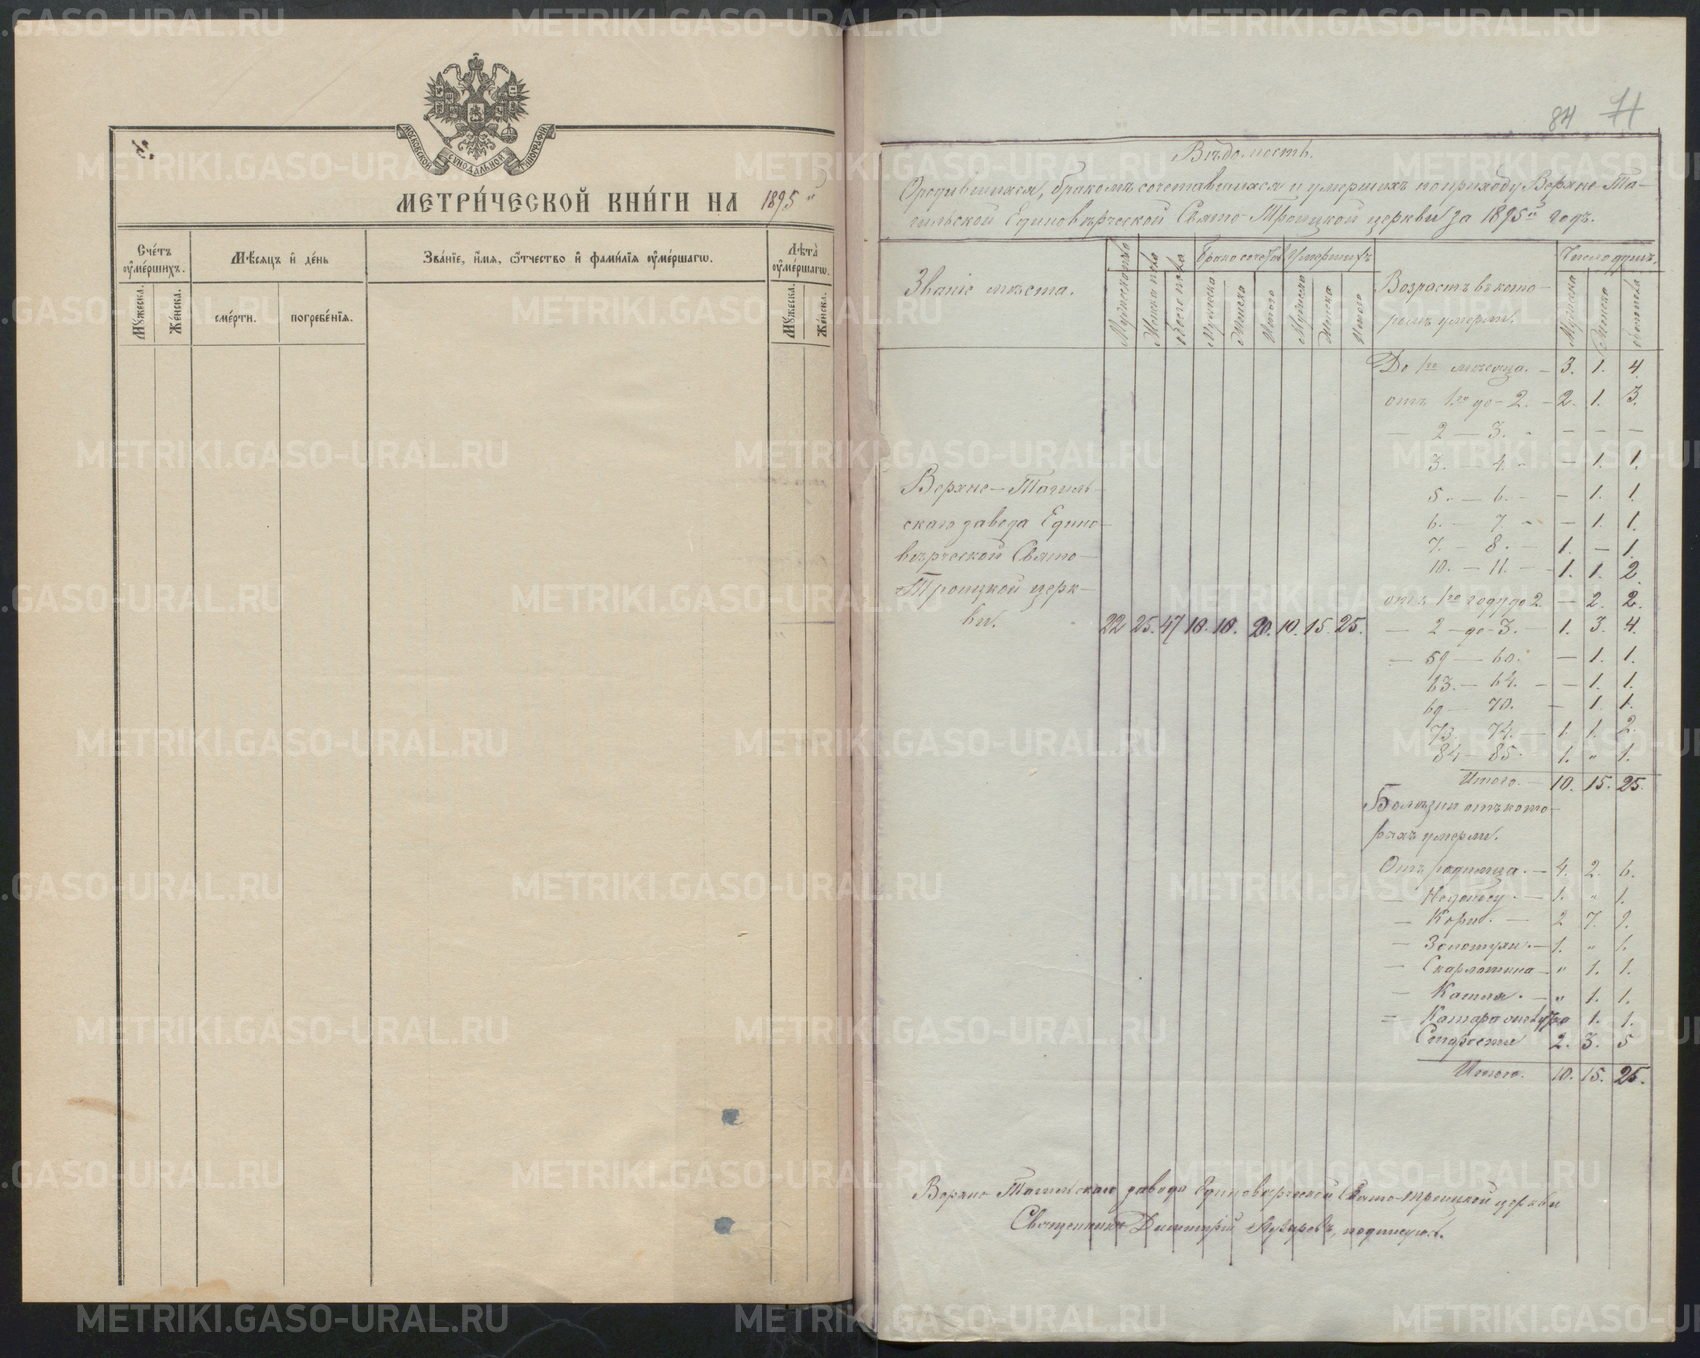 МОСКОВСКОЙ СѴНОДАЛЬНОЙ ТИПОГРАФІИ
МЕТРИ́ЧЕСКОЙ КНИ́ГИ НА 1895
Сче́тъ ᲂу҆ме́ршихъ.
Мѣ́сяцъ и҆ де́нь
Зва́нїе, и҆́мя, ѻ҆́тчество и҆ фами́лїя ᲂу҆ме́ршагѡ.
Лѣ́та ᲂу҆ме́ршагѡ.
Мꙋ́жеска. Же́нска. сме́рти. погребе́нїя. Мꙋ́жеска. Же́нска.
84 71
Вѣдомость.
О родившихся, бракомъ сочетавшихся и умершихъ по приходу Верхне-Та-
гильской Единовѣрческой Свято-Троицкой церкви за 1895й годъ.
Званіе мѣста.
Мужеска Женска Обоего пола
Бракосочет. Мужеска Женска Итого
Умершихъ Мужеска Женска Итого
Возрастъ въ кото-
ромъ умерли.
Число душъ.
Мужеска Женска Обоего пола
Верхне-Тагиль-
скаго завода Едино-
вѣрческой Свято-
Троицкой церк-
ви.
22 25. 47 10. 10. 20. 10. 15. 25.
До 1го мѣсяца. – 3. 1. 4.
отъ 1го до – 2. – 2. 1. 3.
– 2 – 3. – – – –
3. – 4. – – 1. 1.
5. – 6. – – 1. 1.
6. – 7. – – 1. 1.
7. – 8. – 1. – 1.
10. – 11. – 1. 1. 2.
отъ 1го году до 2. – 2. 2.
– 2 – до – 3. – 1. 3. 4.
– 59 – 60. – 1. 1.
63. – 64. – – 1. 1.
69 – 70. – 1. 1.
73. 74. – 1. 1. 2.
84 – 85. 1. „ 1.
Итого. – 10. 15. 25.
Болѣзни отъ кото-
рыхъ умерли.
Отъ родимца. – 4. 2. 6.
– Кори. – 2 7. 9.
– Золотухи. – 1. „ 1.
– Скарлатина – „ 1. 1.
– Кашля. – „ 1. 1.
1. 1.
Старости 2. 3. 5
Итого. 10. 15. 25.
Верхне-Тагильскаго завода Единовѣрческой Свято-Троицкой церкви
Священникъ Димитрій подпишусь.
METRIKI.GASO-URAL.RU